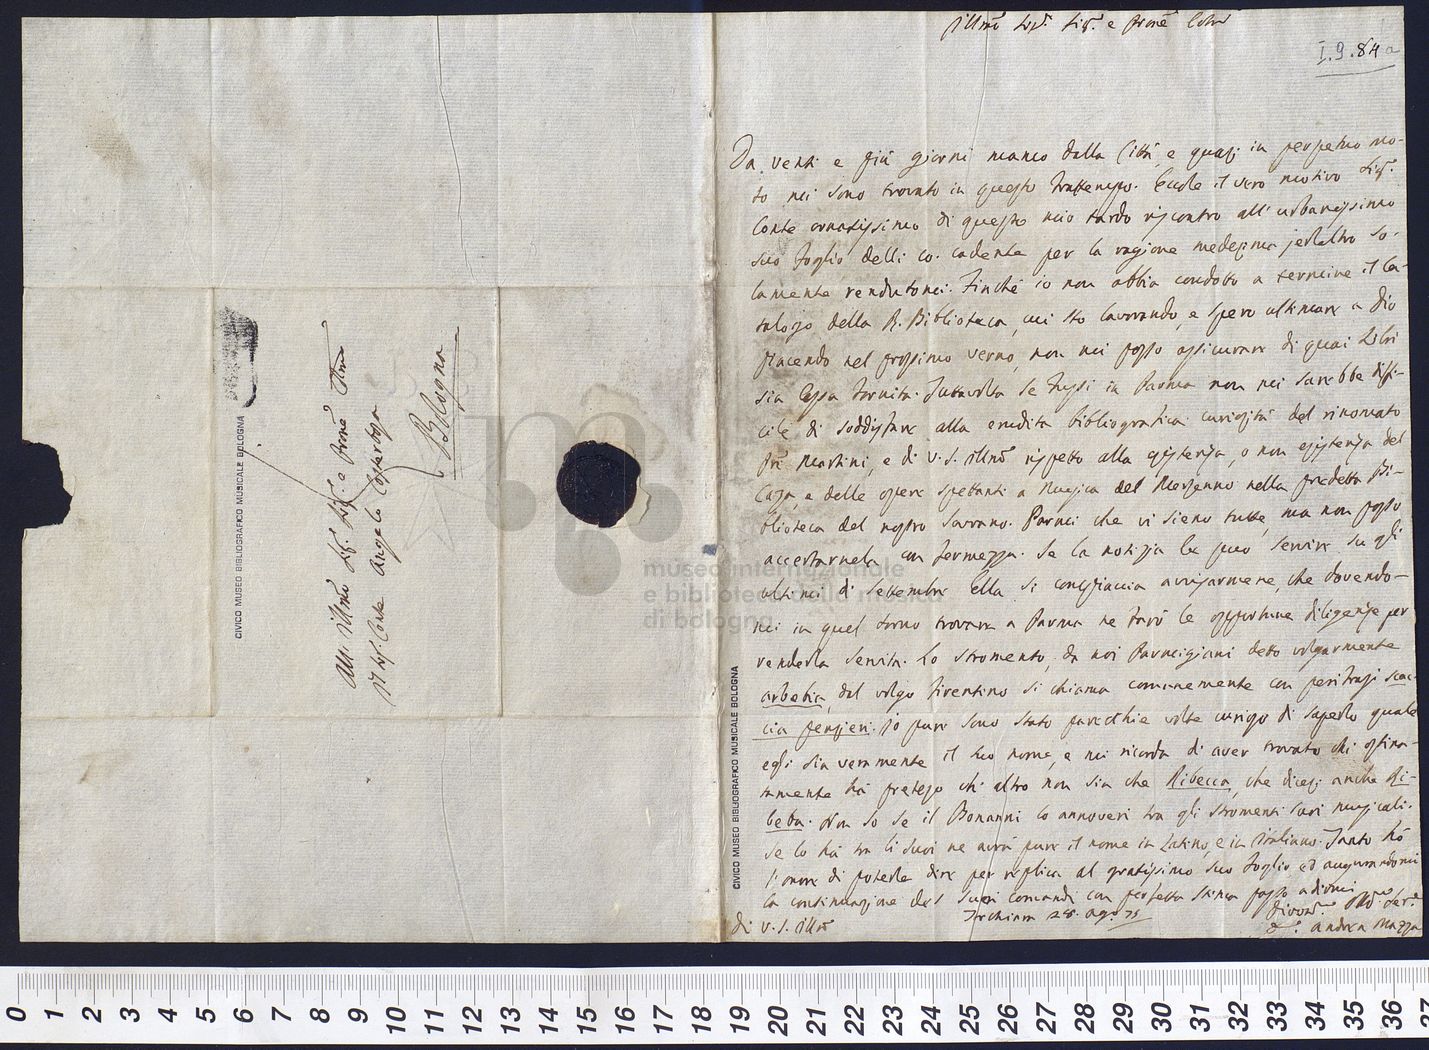 Illmo Sigr. Sigr. e Prone Colmo
I.9.84a
Da venti e più giorni manco dalla Città, e quasi in perpetuo mo-
to mi sono trovato in questo frattempo. Eccole il vero motivo Sigr.
Conte ornatissimo di questo mio tardo riscontro all'urbanissimo
suo foglio delli 10. cadente per la ragione medesima jerlaltro so-
lamente rendutomi. Finché io non abbia condotto a termine il Ca-
talogo della R. Biblioteca, cui sto lavorando, e spero ultimare a Dio
piacendo nel prossimo verno, non mi posso assicurare di quai Libri
sia essa fornita. Tuttavolta se fussi in Parma non mi sarebbe diffi-
cile di soddisfare alla erudita bibliografica curiosità del rinomato
Pre Martini, e di V. S. Illma rispetto alla esistenza, o non esistenza del
e delle opere spettanti a Musica del Mersenno nella predetta Bi-
blioteca del nostro Sovrano. Parmi che vi sieno tutte, ma non posso
accertarnela con fermezza. Se la notizia le può servire su gli
ultimi di Settembre Ella si compiaccia avvisarmene, che dovendo-
mi in quel torno trovare a Parma ne farò le opportune diligenze per
renderla servita. Lo stromento, da noi Parmigiani detto volgarmente
arbebia, dal volgo fiorentino si chiama comunemente con perifrasi scac-
cia pensieri. Io pure sono stato parecchie volte curioso di saperlo quale
egli sia veramente il suo nome, e mi ricorda di aver trovato chi ostina-
tamente ha preteso ch'altro non sia che Ribecca, che dicesi anche Ri-
beba. Non so se il Bonanni lo annoveri tra gli stromenti suoi musicali.
Se lo ha tra li suoi ne avrà pure il nome in Latino, e in Italiano. Tanto ho
l'onore di poterle dire per replica al gratissimo suo foglio, ed augurandomi
la continuazione de' suoi comandi con perfetta stima passo a dirmi
di V. S. Illma
Torchiara 28. ago. 75
Divotmo. Obbmo Serre
D. Andrea Mazza
All' Illmo Sigr. Sigr. e Prone Colmo
Il Sigr. Conte Angelo
Bologna
CIVICO MUSEO BIBLIOGRAFICO MUSICALE BOLOGNA
CIVICO MUSEO BIBLIOGRAFICO MUSICALE BOLOGNA
m.
museo internazionale
e biblioteca della musica
di bologna
0 1 2 3 4 5 6 7 8 9 10 11 12 13 14 15 16 17 18 19 20 21 22 23 24 25 26 27 28 29 30 31 32 33 34 35 36 37